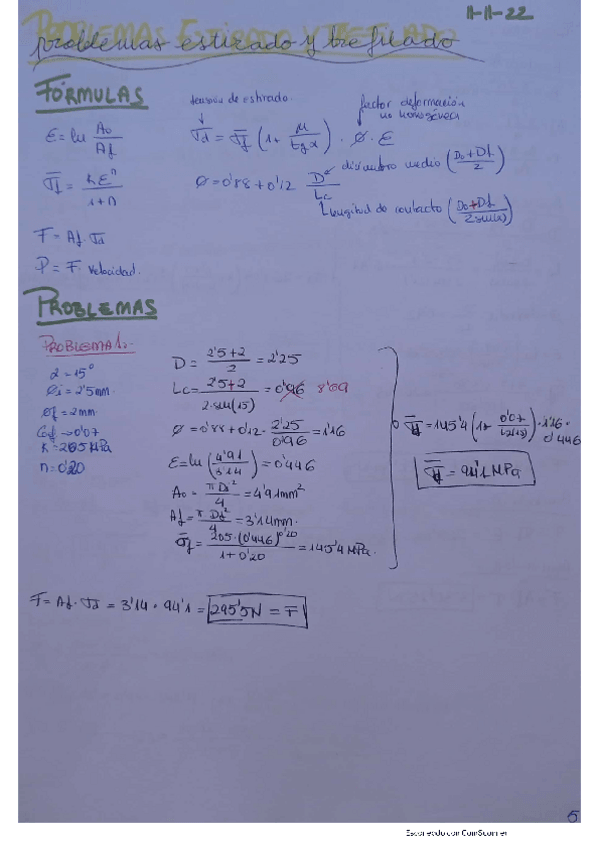 11-11-22
PROBLEMAS ESTIRADO Y TREFILADO
problemas estirado y trefilado
FÓRMULAS
tensión de estirado.
factor deformación no homogénea
ε = ln A₀/Af
σ̄d = σ̄f (1 + μ/tg α) · Ø · ε
σ̄f = Kεⁿ/1+n
Ø = 0'88 + 0'12 D/Lc
diámetro medio (D₀+Df/2)
Longitud de contacto (D₀+Df/2senα)
F = Af · σd
P = F · velocidad.
PROBLEMAS
PROBLEMA 1:-
α = 15°
Øi = 2'5mm.
Øf = 2mm.
Coef → 0'07
K = 205 MPa
n = 0'20
D = 2'5+2/2 = 2'25
Lc = 2'5+2/2·sen(15) = 0'96 8'69
Ø = 0'88 + 0'12 · 2'25/0'96 = 1'16
ε = ln (4'91/3'14) = 0'446
A₀ = πD₀²/4 = 4'91mm²
Af = πDf²/4 = 3'14mm.
σ̄f = 205·(0'446)^0'20/1+0'20 = 145'4 MPa.
= 145'4 (1+ 0'07/) · 1'16 · 0'446
= 94'1 MPa
F = Af · σd = 3'14 · 94'1 = 295'5N = F
5
Escaneado con CamScanner